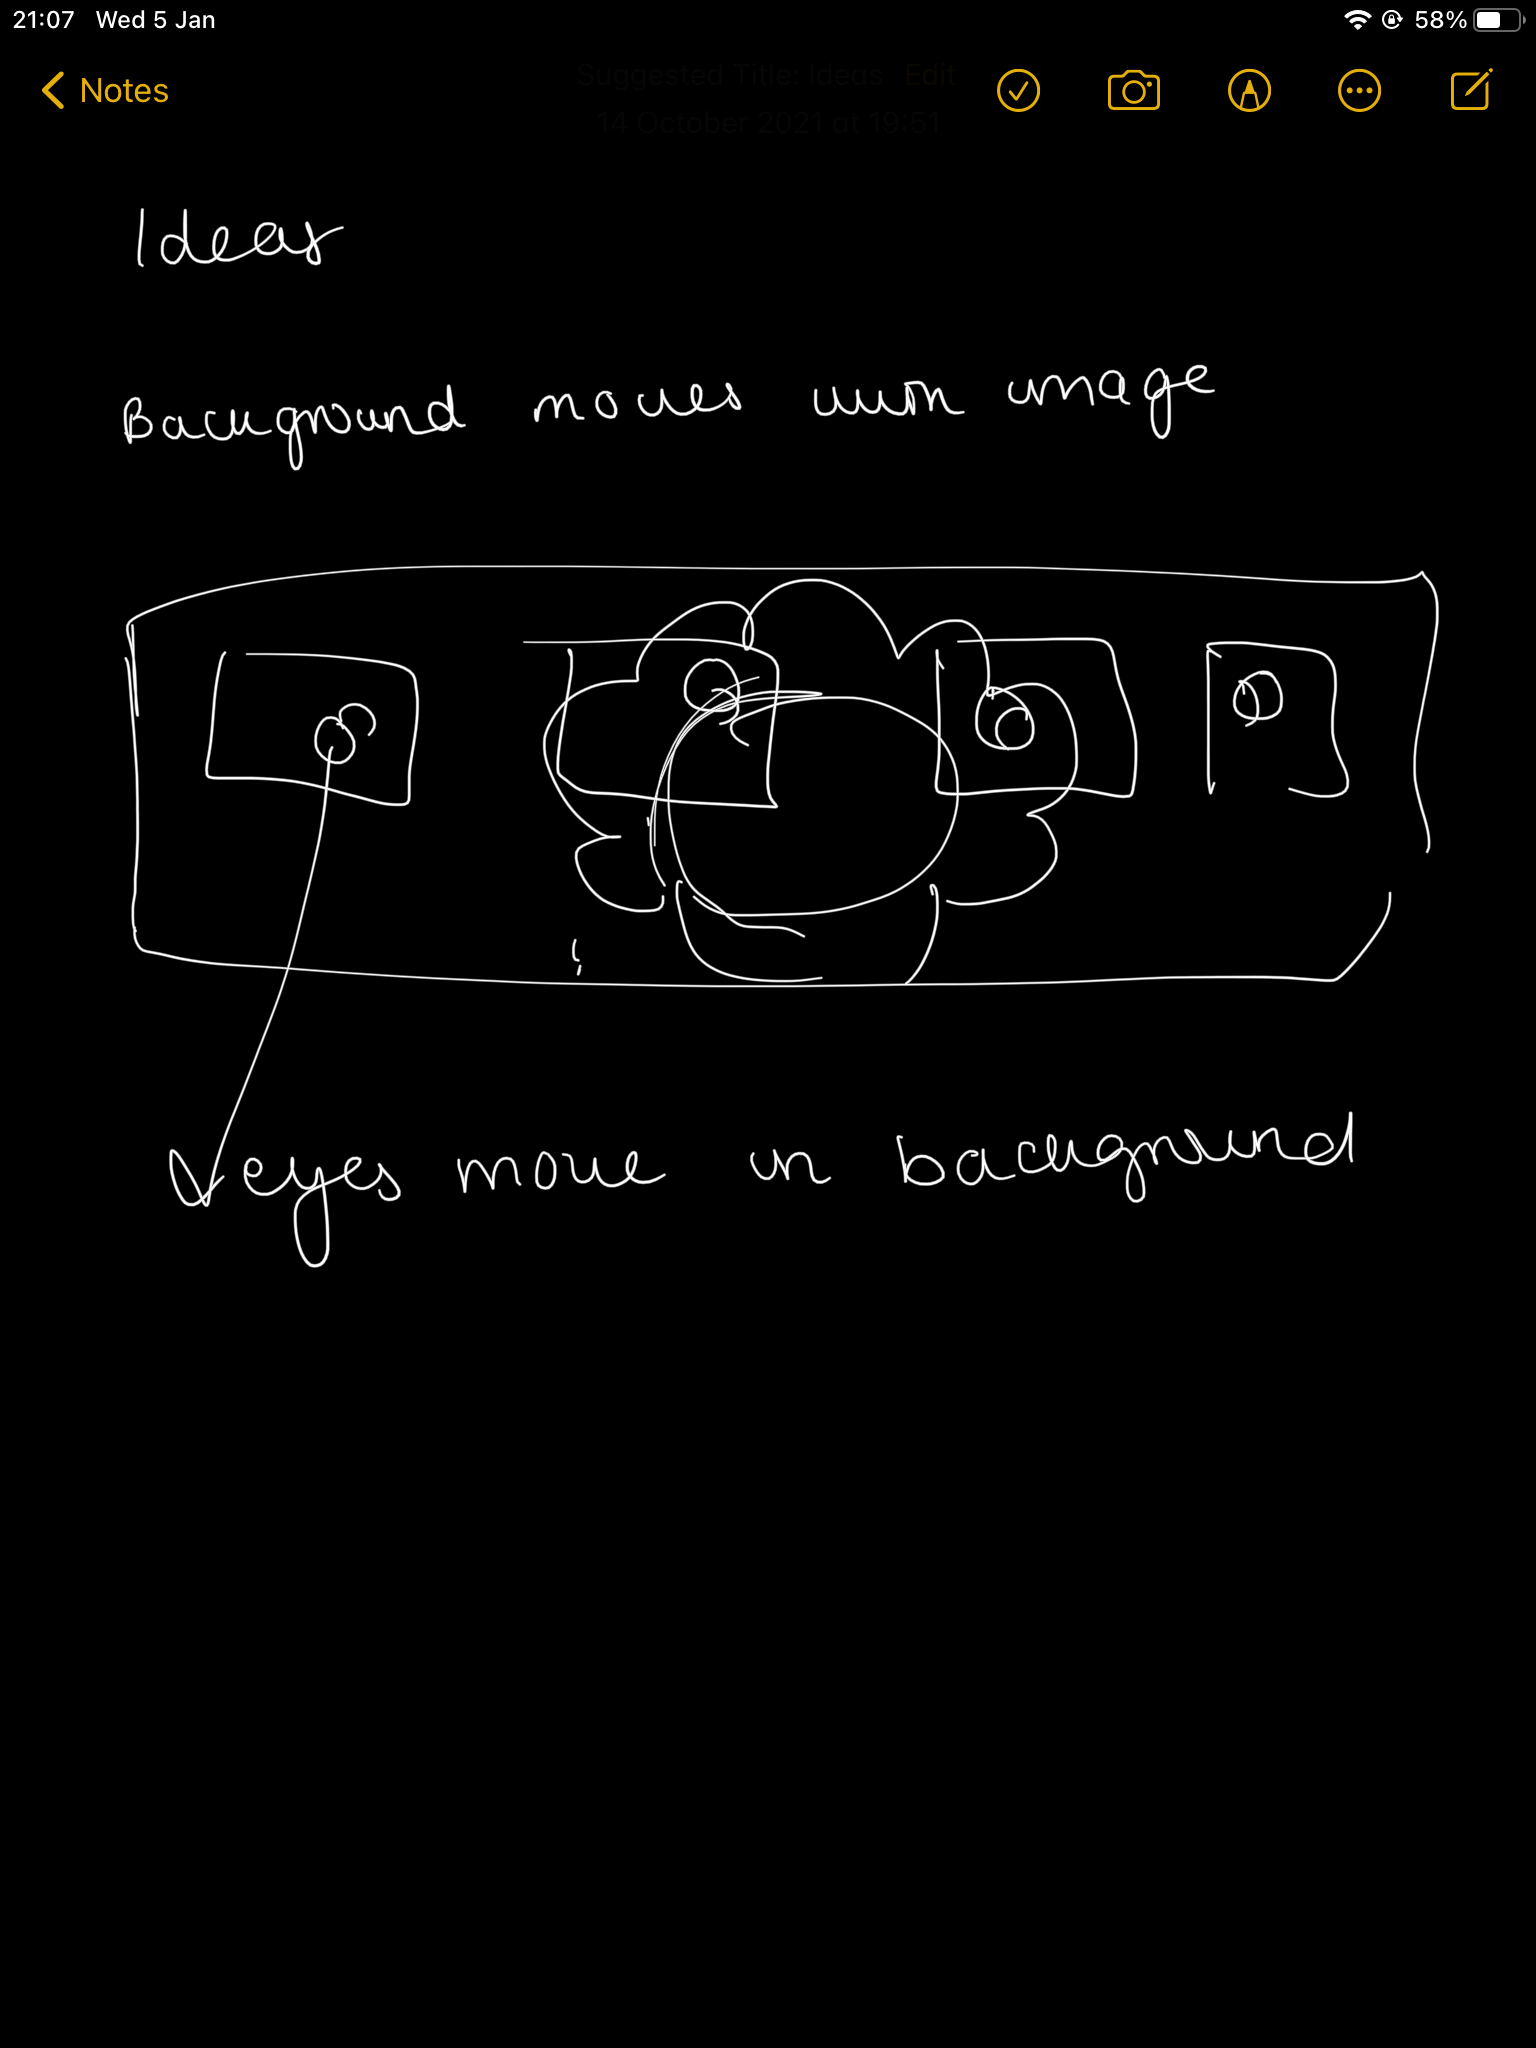 21:07 Wed 5 Jan 58%
Notes
Suggested Title: Ideas Edit
14 October 2021 at 19:51
Ideas
Background moves with image
eyes move in background